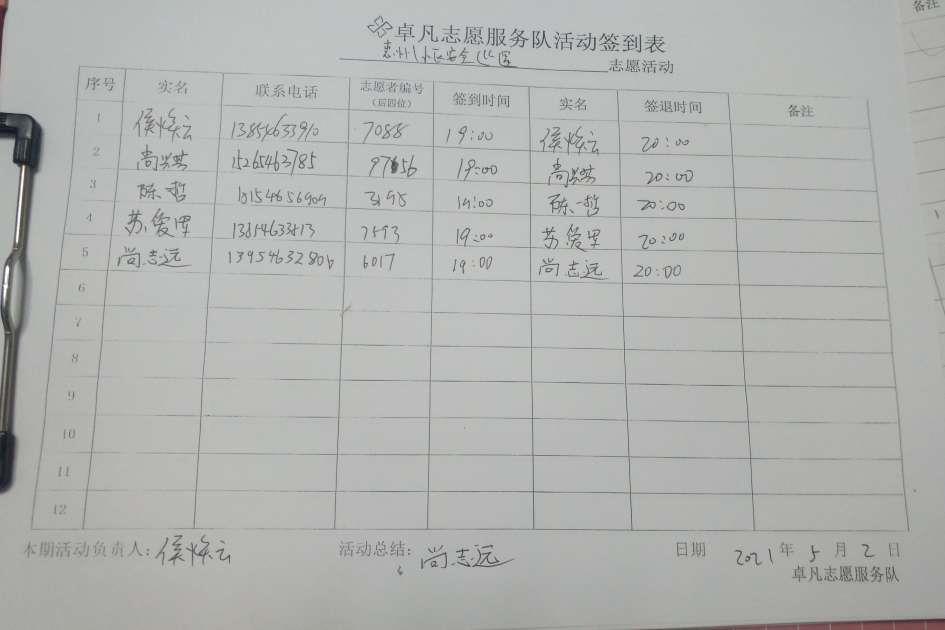 卓凡志愿服务队活动签到表
小区安全巡逻 志愿活动
序号 实名 联系电话 志愿者编号（后四位） 签到时间 实名 签退时间 备注
1 侯焕云 13854633910 7088 19:00 侯焕云 20:00
2 尚洪 15265463785 19:00 尚洪 20:00
3 陈哲 3198 19:00 陈哲 20:00
4 苏爱里 7593 19:00 苏爱里 20:00
5 尚志远 13954632806 6017 19:00 尚志远 20:00
6
7
8
9
10
11
12
本期活动负责人：侯焕云 活动总结：尚志远 日期 2021年5月2日
卓凡志愿服务队
备注